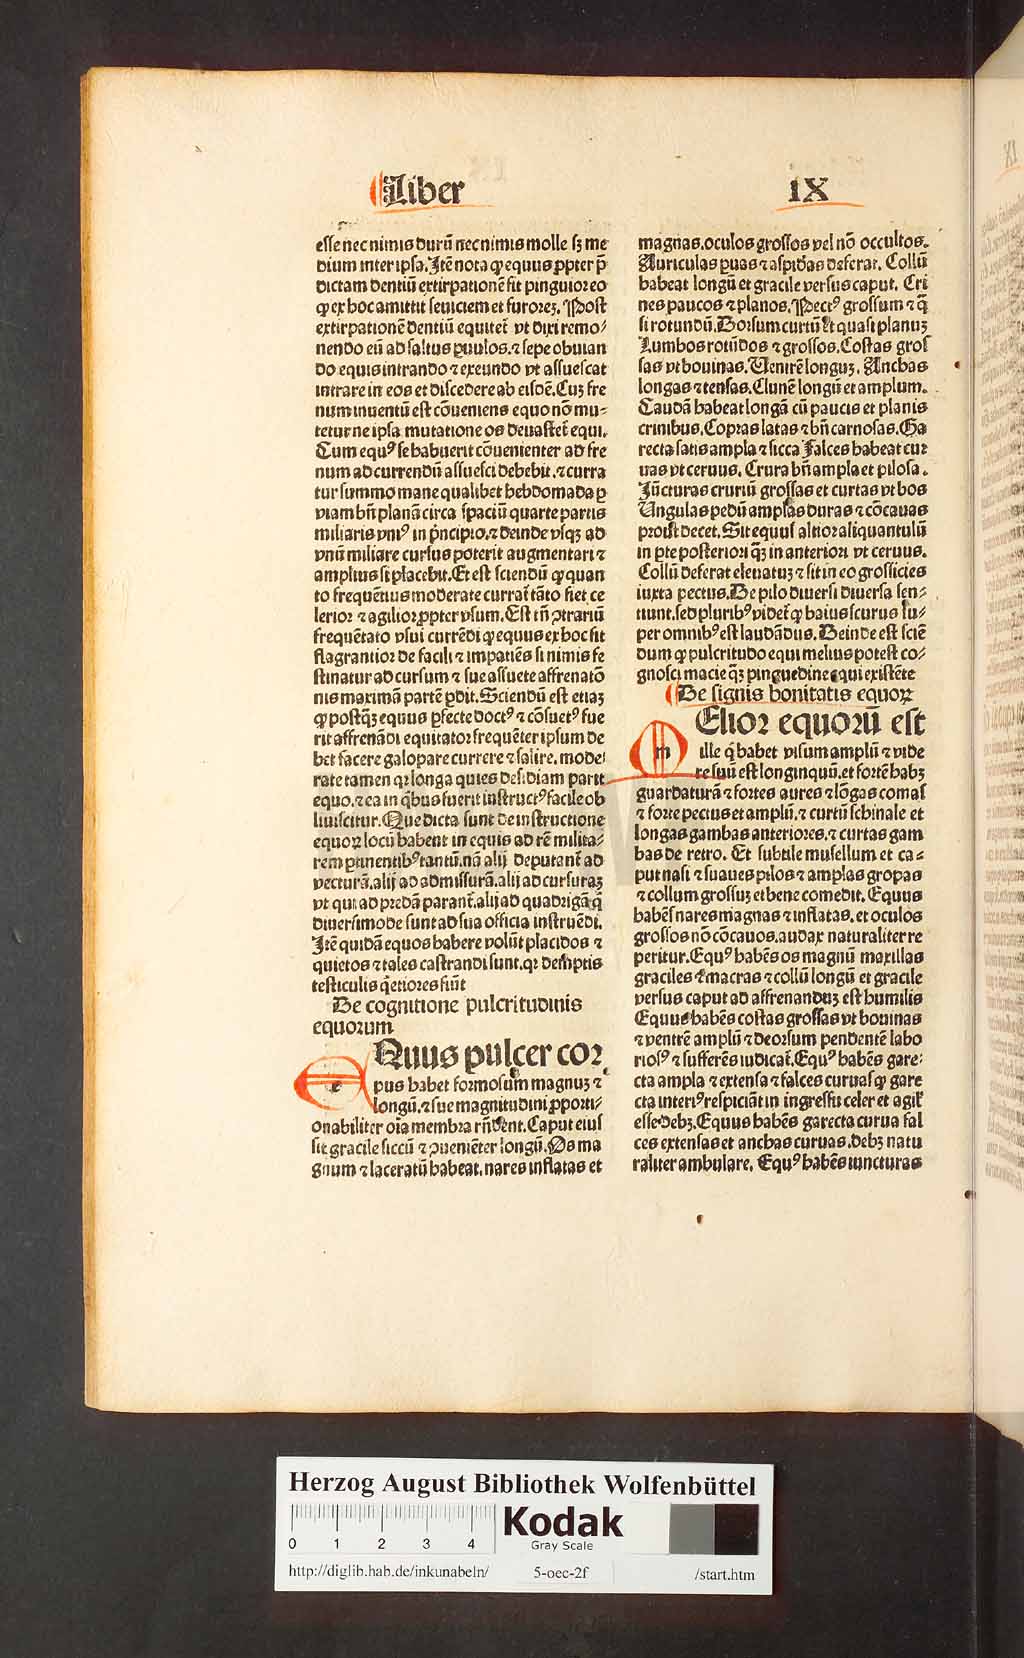 Liber
IX
esse nec nimis durū nec nimis molle sꝫ me
dium inter ipsa. Itē nota ꝙ equus ꝓpter p̄
dictam dentiū extirpationē fit pinguior eo
ꝙ ex hoc amittit seuiciem et furorēꝫ. Post
extirpationē dentiū equitet᷑ vt dixi remo⸗
nendo eū ad saltus ꝑuulos. ⁊ sepe obuian
do equis intrando ⁊ exeundo vt assuescat
intrare in eos et discedere ab eisdē. Cuꝫ fre
num inuentū est cōueniens equo nō mu⸗
tetur ne ipsa mutatione os deuastet᷑ equi.
Cum equꝰ se habuerit cōuenienter ad fre
num ad currendū assuesci debebit. ⁊ curra
tur summo mane qualibet hebdomada ꝑ
viam bn̄ planā circa spaciū quarte partis
miliaris vniꝰ in pͥncipio. ⁊ deinde vsqꝫ ad
vnū miliare cursus poterit augmentari ⁊
amplius si placebit. Et est sciendū ꝙ quan
to frequētius moderate currat tāto fiet ce
lerior ⁊ agilior ꝓpter vsum. Est tn̄ ↄtrariū
frequētato vsui currēdi ꝙ equus ex hoc fit
flagrantior de facili ⁊ impatiēs si nimis fe
stinatur ad cursum ⁊ sue assuete affrenatō
nis maximā partē ꝑdit. Sciendū est etiaꝫ
ꝙ postqꝫ equus ꝑfecte doctꝰ ⁊ cōsuetꝰ fue
rit affrenādi equitator frequēter ipsum de
bet facere galopare currere ⁊ salire. mode⸗
rate tamen qꝛ longa quies desidiam parit
equo. ⁊ ea in qͥbus fuerit instructꝰ facile ob
liuiscitur. Que dicta sunt de instructione
equoꝝ locū habent in equis ad rē milita⸗
rem ꝑtinentibꝰ tantū. nā alij deputant᷑ ad
vecturā. alij ad admissurā. alij ad cursuraꝫ
vt qui ad predā parant᷑. alij ad quadrigā. q̄
diuersimode sunt ad sua officia instruēdi.
Itē quidā equos habere volūt placidos ⁊
quietos ⁊ tales castrandi sunt. qꝛ demptis
testiculis qͥetiores fiūt
De cognitione pulcritudinis
equorum
eQuus pulcer cor
pus habet formosum magnuꝫ ⁊
longū. ⁊ sue magnitudini ꝓporti⸗
onabiliter oīa membra rn̄dent. Caput eius
sit gracile siccū ⁊ ꝯueniēter longū. Os ma
gnum ⁊ laceratū habeat. nares inflatas et
magnas. oculos grossos vel nō occultos.
Auriculas ꝑuas ⁊ aspidas deferat. Collū
habeat longū et gracile versus caput. Cri
nes paucos ⁊ planos. Pectꝰ grossum ⁊ q̄
si rotundū. Dorsum curtū et quasi planuꝫ
Lumbos rotūdos ⁊ grossos. Costas gros
sas vt bouinas. Ventrē longuꝫ. Anchas
longas ⁊ tensas. Clunē longū et amplum.
Caudā habeat longā cū paucis et planis
crinibus. Copras latas ⁊ bn̄ carnosas. Ga
recta satis ampla ⁊ sicca Falces habeat cur
uas vt ceruus. Crura bn̄ ampla et pilosa.
Iūcturas cruriū grossas et curtas vt bos
Vngulas pedū amplas duras ⁊ cōcauas
prout decet. Sit equus altior aliquantulū
in ꝑte posteriori qꝫ in anteriori vt ceruus.
Collū deferat eleuatuꝫ ⁊ sit in eo grossicies
iuxta pectus. De pilo diuersi diuersa sen⸗
tiunt. sed pluribꝰ videt᷑ ꝙ baius scurus su⸗
per omnibꝰ est laudādus. Deinde est sciē
dum ꝙ pulcritudo equi melius potest co⸗
gnosci macie qꝫ pinguedine equi existēte
De signis bonitatis equoꝝ
mElior equorū est
ille qͥ habet visum amplū ⁊ vide
re suū est longinquū. et fortē habꝫ
guardaturā ⁊ fortes aures ⁊ lōgas comas
⁊ forte pectus et amplū. ⁊ curtū schinale et
longas gambas anteriores. ⁊ curtas gam
bas de retro. Et subtile musellum et ca⸗
put nasi ⁊ suaues pilos ⁊ amplas gropas
⁊ collum grossuꝫ et bene comedit. Equus
habēs nares magnas ⁊ inflatas. et oculos
grossos nō cōcauos. audax naturaliter re
peritur. Equꝰ habēs os magnū maxillas
graciles ⁊ macras ⁊ collū longū et gracile
versus caput ad affrenanduꝫ est humilis
Equus habēs costas grossas vt bouinas
⁊ ventrē amplū ⁊ deorsum pendentē labo
riosꝰ ⁊ sufferēs iudicat᷑. Equꝰ habēs gare⸗
cta ampla ⁊ extensa ⁊ falces curuas ꝙ gare
cta interiꝰ respiciāt in ingressu celer et agil᷑
esse debꝫ. Equus habēs garecta curua fal
ces extensas et anchas curuas. debꝫ natu
raliter ambulare. Equꝰ habēs iuncturas
Herzog August Bibliothek Wolfenbüttel
0 1 2 3 4
Kodak
Gray Scale
http://diglib.hab.de/inkunabeln/ 5-oec-2f /start.htm